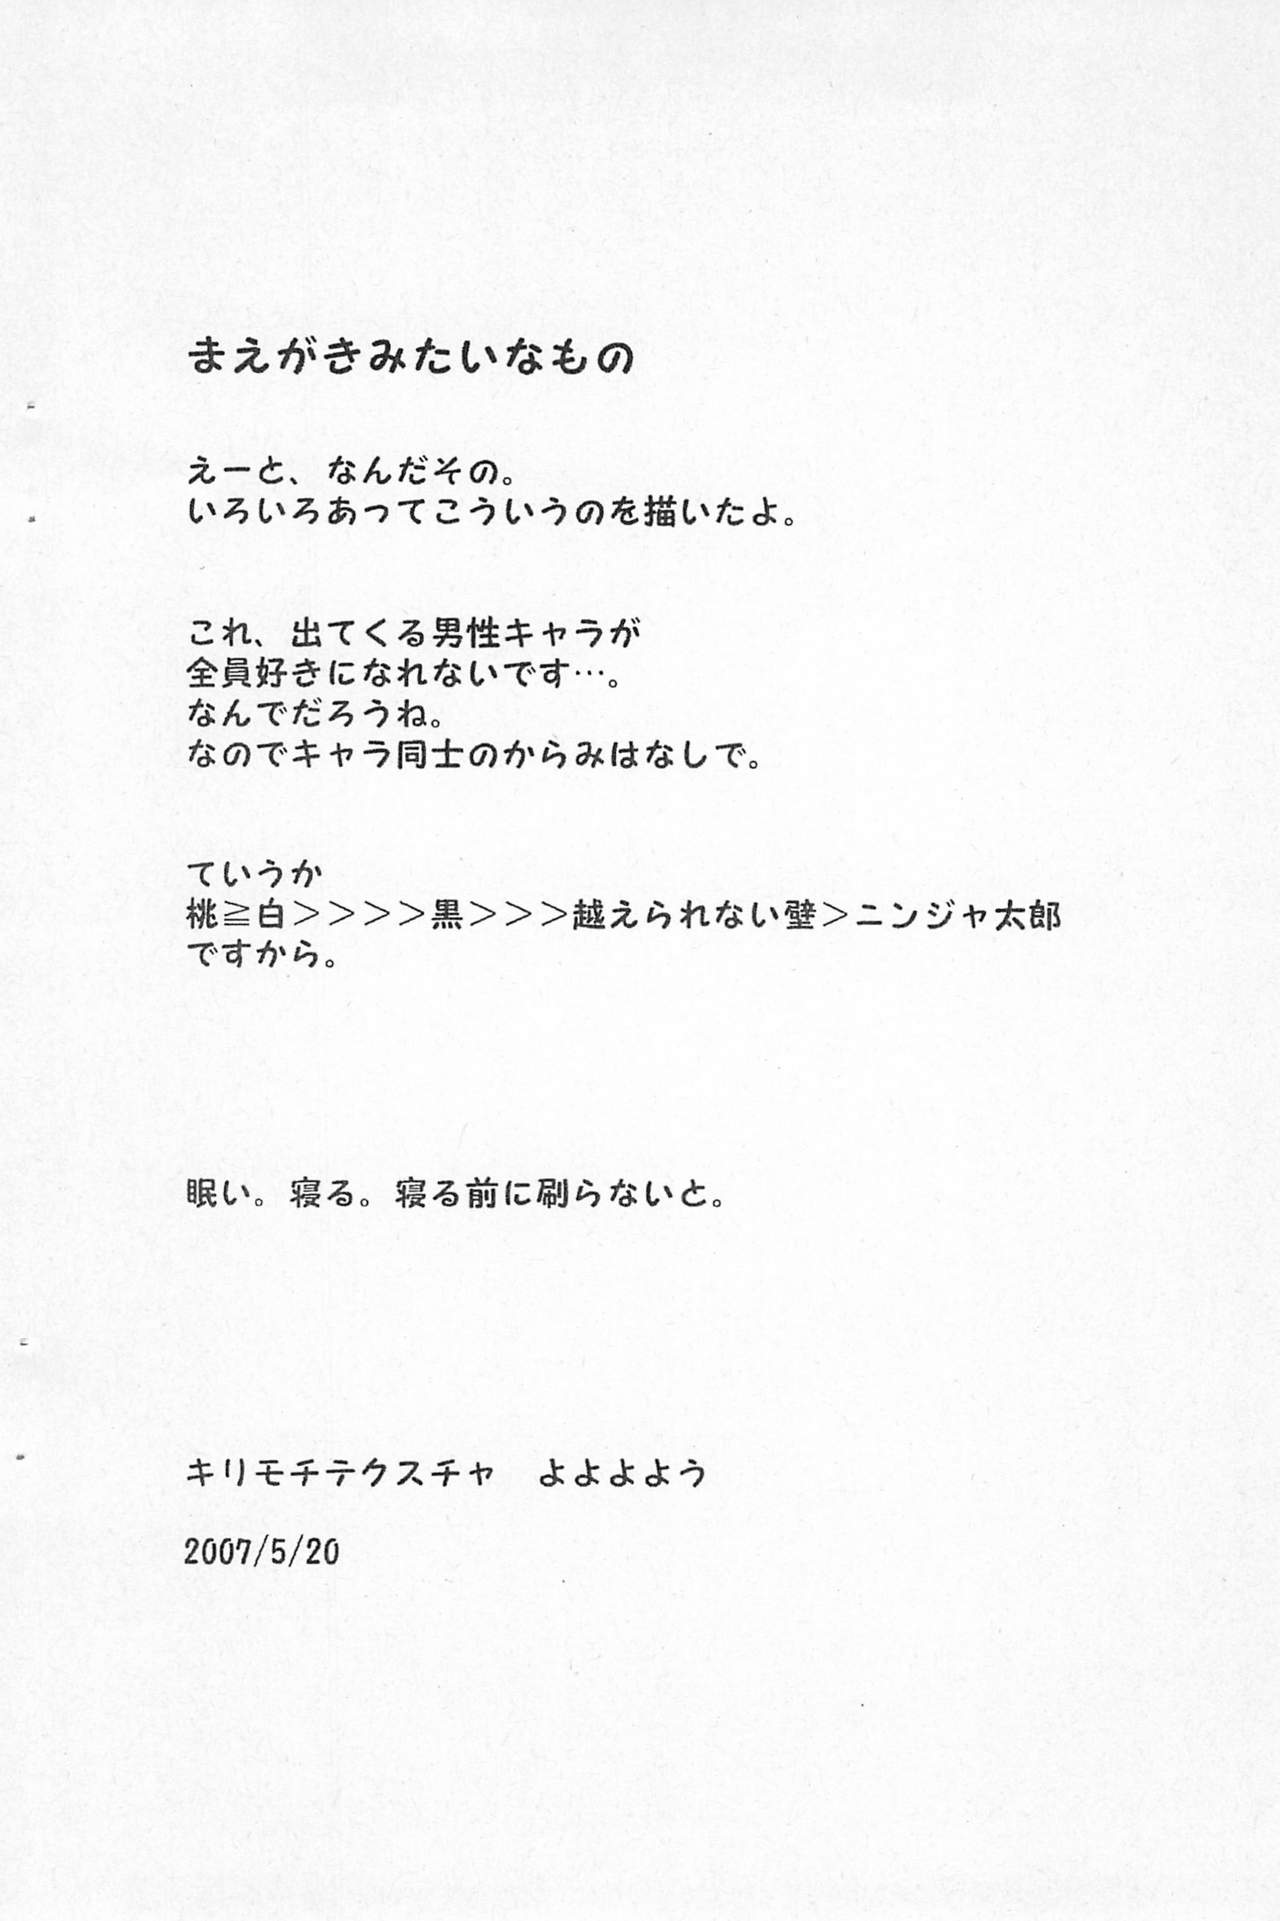 まえがきみたいなもの
えーと、なんだその。
いろいろあってこういうのを描いたよ。
これ、出てくる男性キャラが
全員好きになれないです…。
なんでだろうね。
なのでキャラ同士のからみはなしで。
ていうか
桃≧白＞＞＞＞黒＞＞＞越えられない壁＞ニンジャ太郎
ですから。
眠い。寝る。寝る前に刷らないと。
キリモチテクスチャ　よよよよう
2007/5/20